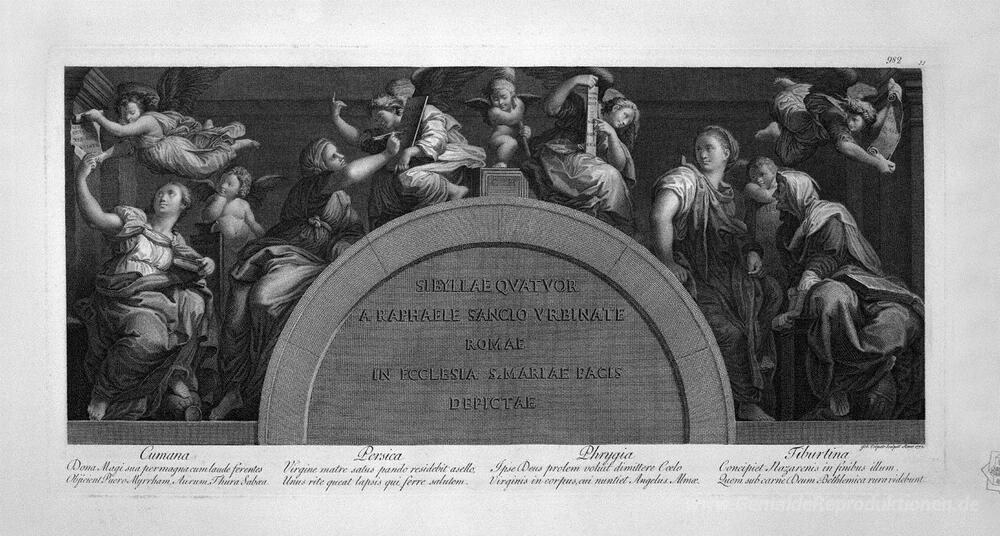 982
SIBYLLAE QVATVOR
A RAPHAELE SANCIO VRBINATE
ROMAE
IN ECCLESIA S. MARIAE PACIS
DEPICTAE
Cumana
Dona Magi sua permagna cum laude ferentes
Objicient Puero Myrrham, Aurum, Thura Sabæa.
Persica
Virgine matre satus pando residebit asello,
Unus rite queat lapsis qui ferre salutem.
Phrygia
Ipse Deus prolem voluit dimittere Cœlo
Virginis in corpus, cui nuntiet Angelus Almæ.
Tiburtina
Concipiet Nazarenis in finibus illum,
Quem sub carne Deum Bethlemica rura videbunt.